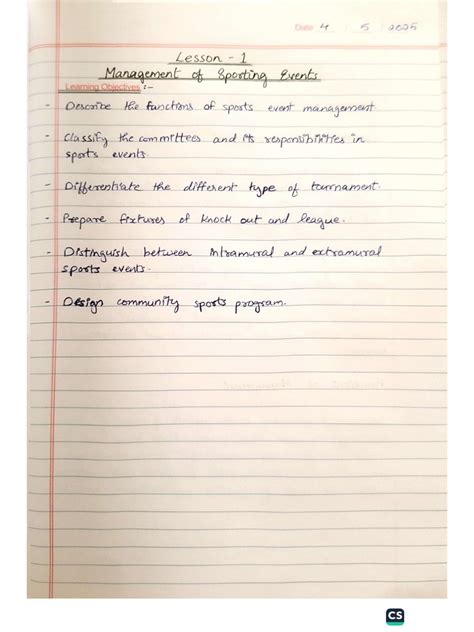 Date 4 / 5 / 2025
Lesson - 1
Management of Sporting Events
Learning Objectives :-
- Describe the functions of sports event management
- Classify the committees and its responsibilities in
sports events.
- Differentiate the different type of tournament.
- Prepare fixtures of knock out and league.
- Distinguish between intramural and extramural
sports events.
- Design community sports program.
CS